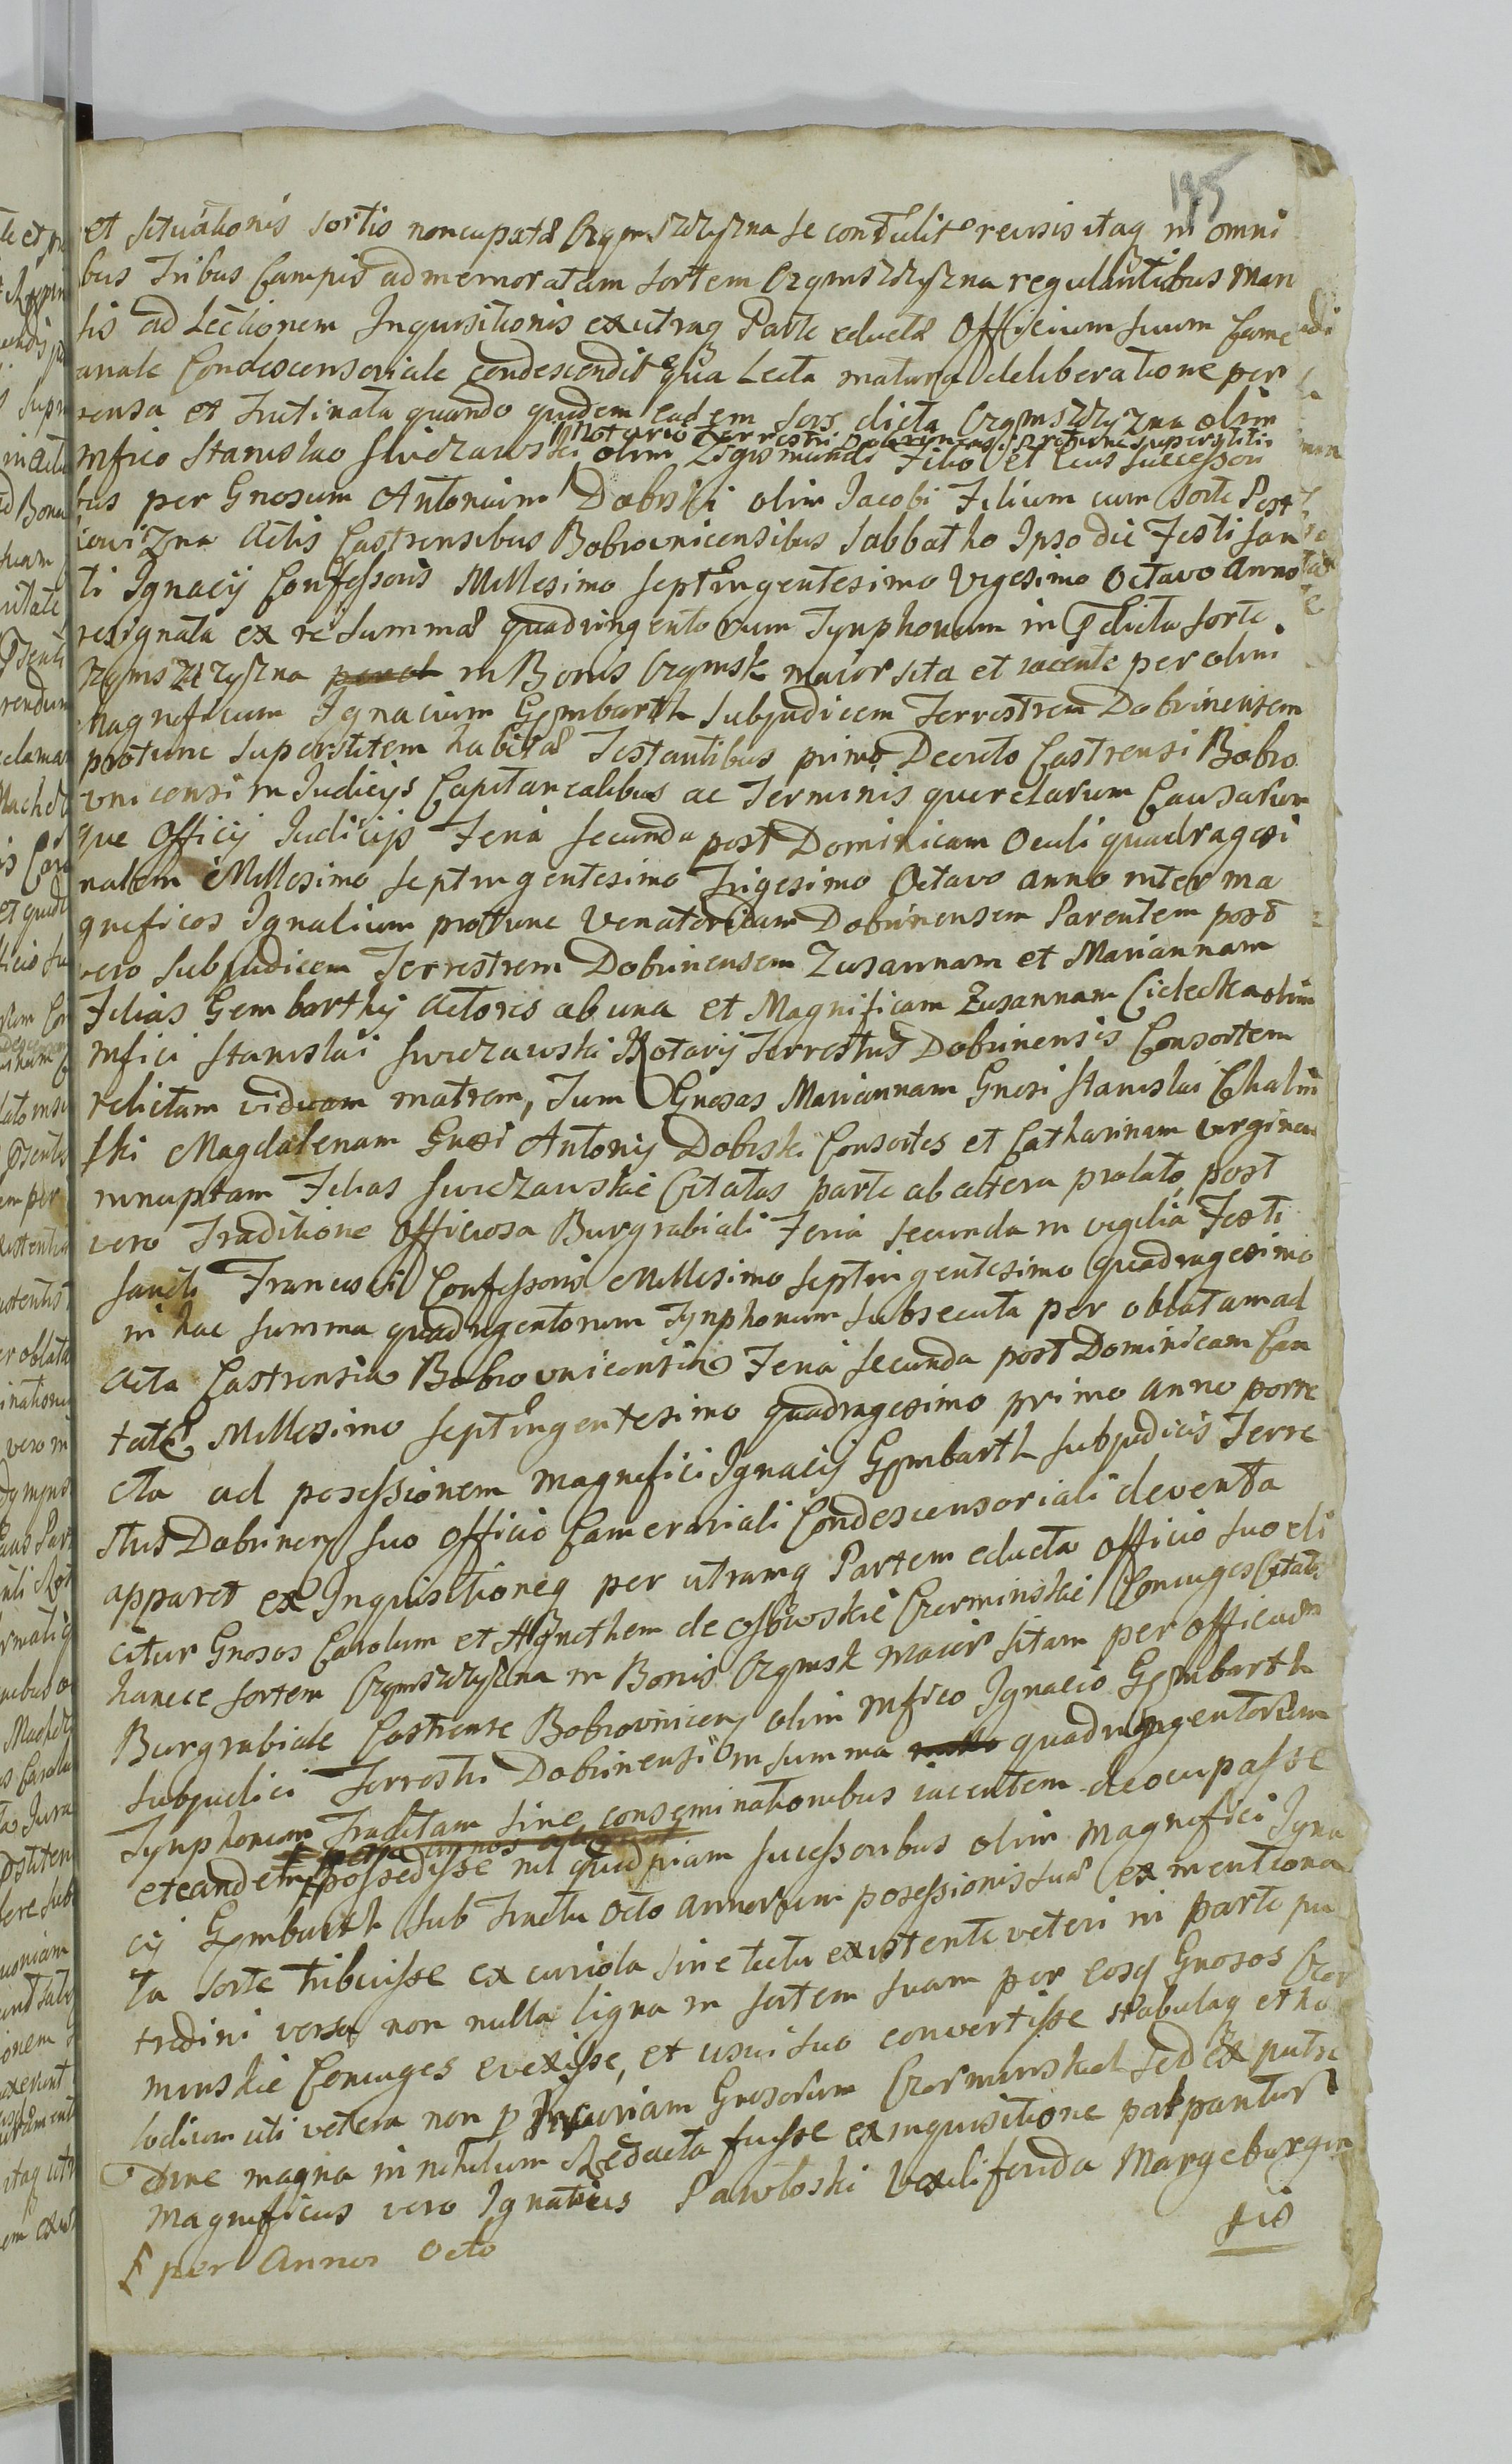 195
et situationis sortis noncupatæ Czyms ZdZyzna se contulit reuisis itaq in omni
bus Tribus Campis ad memoratam sortem CzymsZdZyzna regulantibus Man
sis ad Lectionem Inquisitionis ex utraq Parte eductæ Officium suum Came
rariale Condescensoriale Condescendit qua Lecta matura deliberatione per
pensa et Trutinata quando quidem eadem sors dicta CzymsZdZyzna olim
Notario Terrestri Dobrinensi protunc superstitis
Mfico Stanislao Swiezawski olim Zigismundi Filio et Eius Successori
bus per Gnosum Antonium Dobrski olim Jacobi Filium cum sorte Post
Actis Castrensibus Bobrovnicensibus Sabbatho Ipso die Festi San
ti Ignacij Confessoris Millesimo septingentesimo Vigesimo Octavo Anno
resignata ex re summæ quadringentorum Tynphonum in pdicta sorte
in Bonis Czymsk maior sita et iacente per olim
Magnificum Ignacium Gembarth Subjudicem Terrestrem Dobrinensem
protunc superstitem habitæ Testantibus primo Decreto Castrensi Bobro
vnicensi in Judicijs Capitanealibus ac Terminis querelarum Causarum
que Officij Judicijs Feria secunda post Dominicam Oculi quadragesi
malem Millesimo septingentesimo Trigesimo Octavo anno inter ma
gnificos Ignatium protunc Venatoricum Dobrinensem Parentem post
vero Subjudicem Terrestrem Dobrinensem Zusannam et Mariannam
Filias Gembarthy Actores ab una et Magnificam Zusannam Cielecka olim
Mfici Stanislai Swiezawski Notarij Terrestris Dobrinensis Consortem
relictam viduam matrem, Tum Gnosas Mariannam Gnosi Stanislai Chalin
ski Magdalenam Gnosi Antonij Dobrski Consortes et Catharinam virginem
innuptam Filias Swiezawskie Citatas parte ab altera prolato, post
vero Traditione Officiosa Burgrabiali Feria secunda in vigilia Festi
Sancti Francisci Confessoris Millesimo septingentesimo quadragesimo
in hac summa quadringentorum Tynphonum subsecuta per oblatam ad
Acta Castrensia Bobrovnicensia Feria secunda post Dominicam Can
tate Millesimo septingentesimo quadragesimo primo anno porre
cta ad possessionem Magnifici Ignacij Gembarth Subjudicis Terre
stris Dobrinen suo officio Camerariali Condescensoriali deventa
apparet ex Inquisitioneq per utramq Partem educta officio suo eli
citur Gnosos Carolum et Agnethem de Czerminskie Coniuges Citatos
hancce sortem CzymsZdZyzna in Bonis Czymsk maior sitam per officium
Burgrabiale Castrense Bobrovnicen olim Mfico Ignacio Gembarth
Subjudici Terrestri Dobrinensi in summa quadringentorum
Tynphonum Traditam sine conseminationibus iacentem deocupasse
eteandem possedisse nil quidpiam sucessoribus olim Magnifici Igna
cij Gembarth sub Tractu Octo annorum possessionis suæ ex mentiona
ta sorte tribuisse ex curiola sine tectu existente veteri in parte pu
tredini versa non nulla ligna in sortem suam per eosq Gnosos Czer
minskie Coniuges evexisse, et usui suo convertisse stabulaq et ho
rdium uti vetera non p Incuriam Gnosorum Czerminskich sed ex putre
dine magna in nihilum Redacta fuisse ex inquisitione palpantur
Magnificus vero Ignatius Pawloski Vexiliferida Margeburgen
sis
per Annos Octo